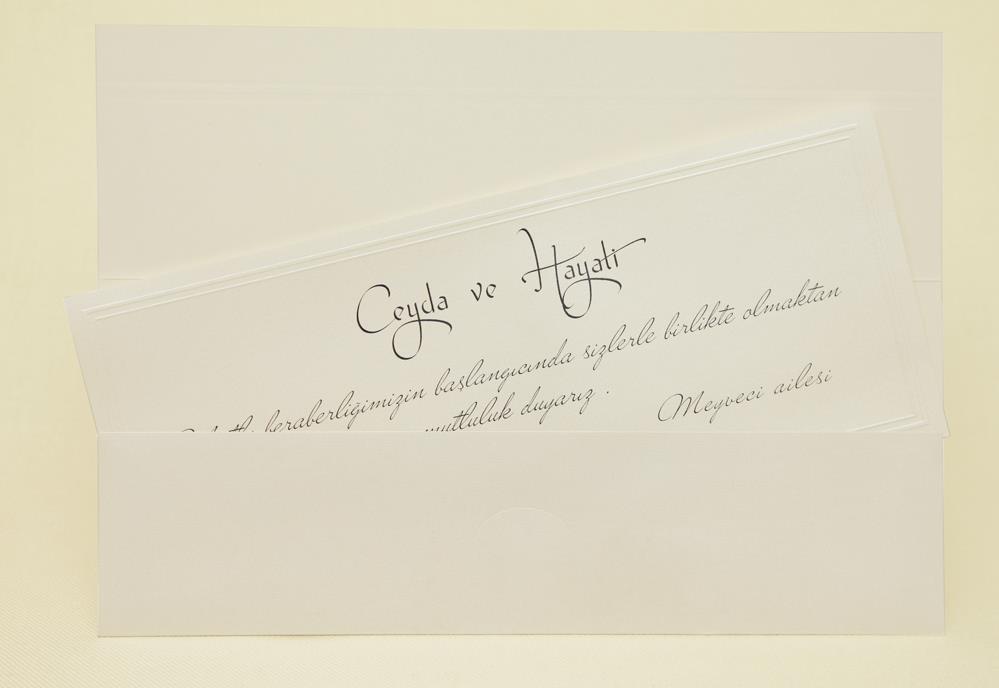 Ceyda ve Hayati
beraberliğimizin başlangıcında sizlerle birlikte olmaktan
mutluluk duyarız .
Meyveci ailesi